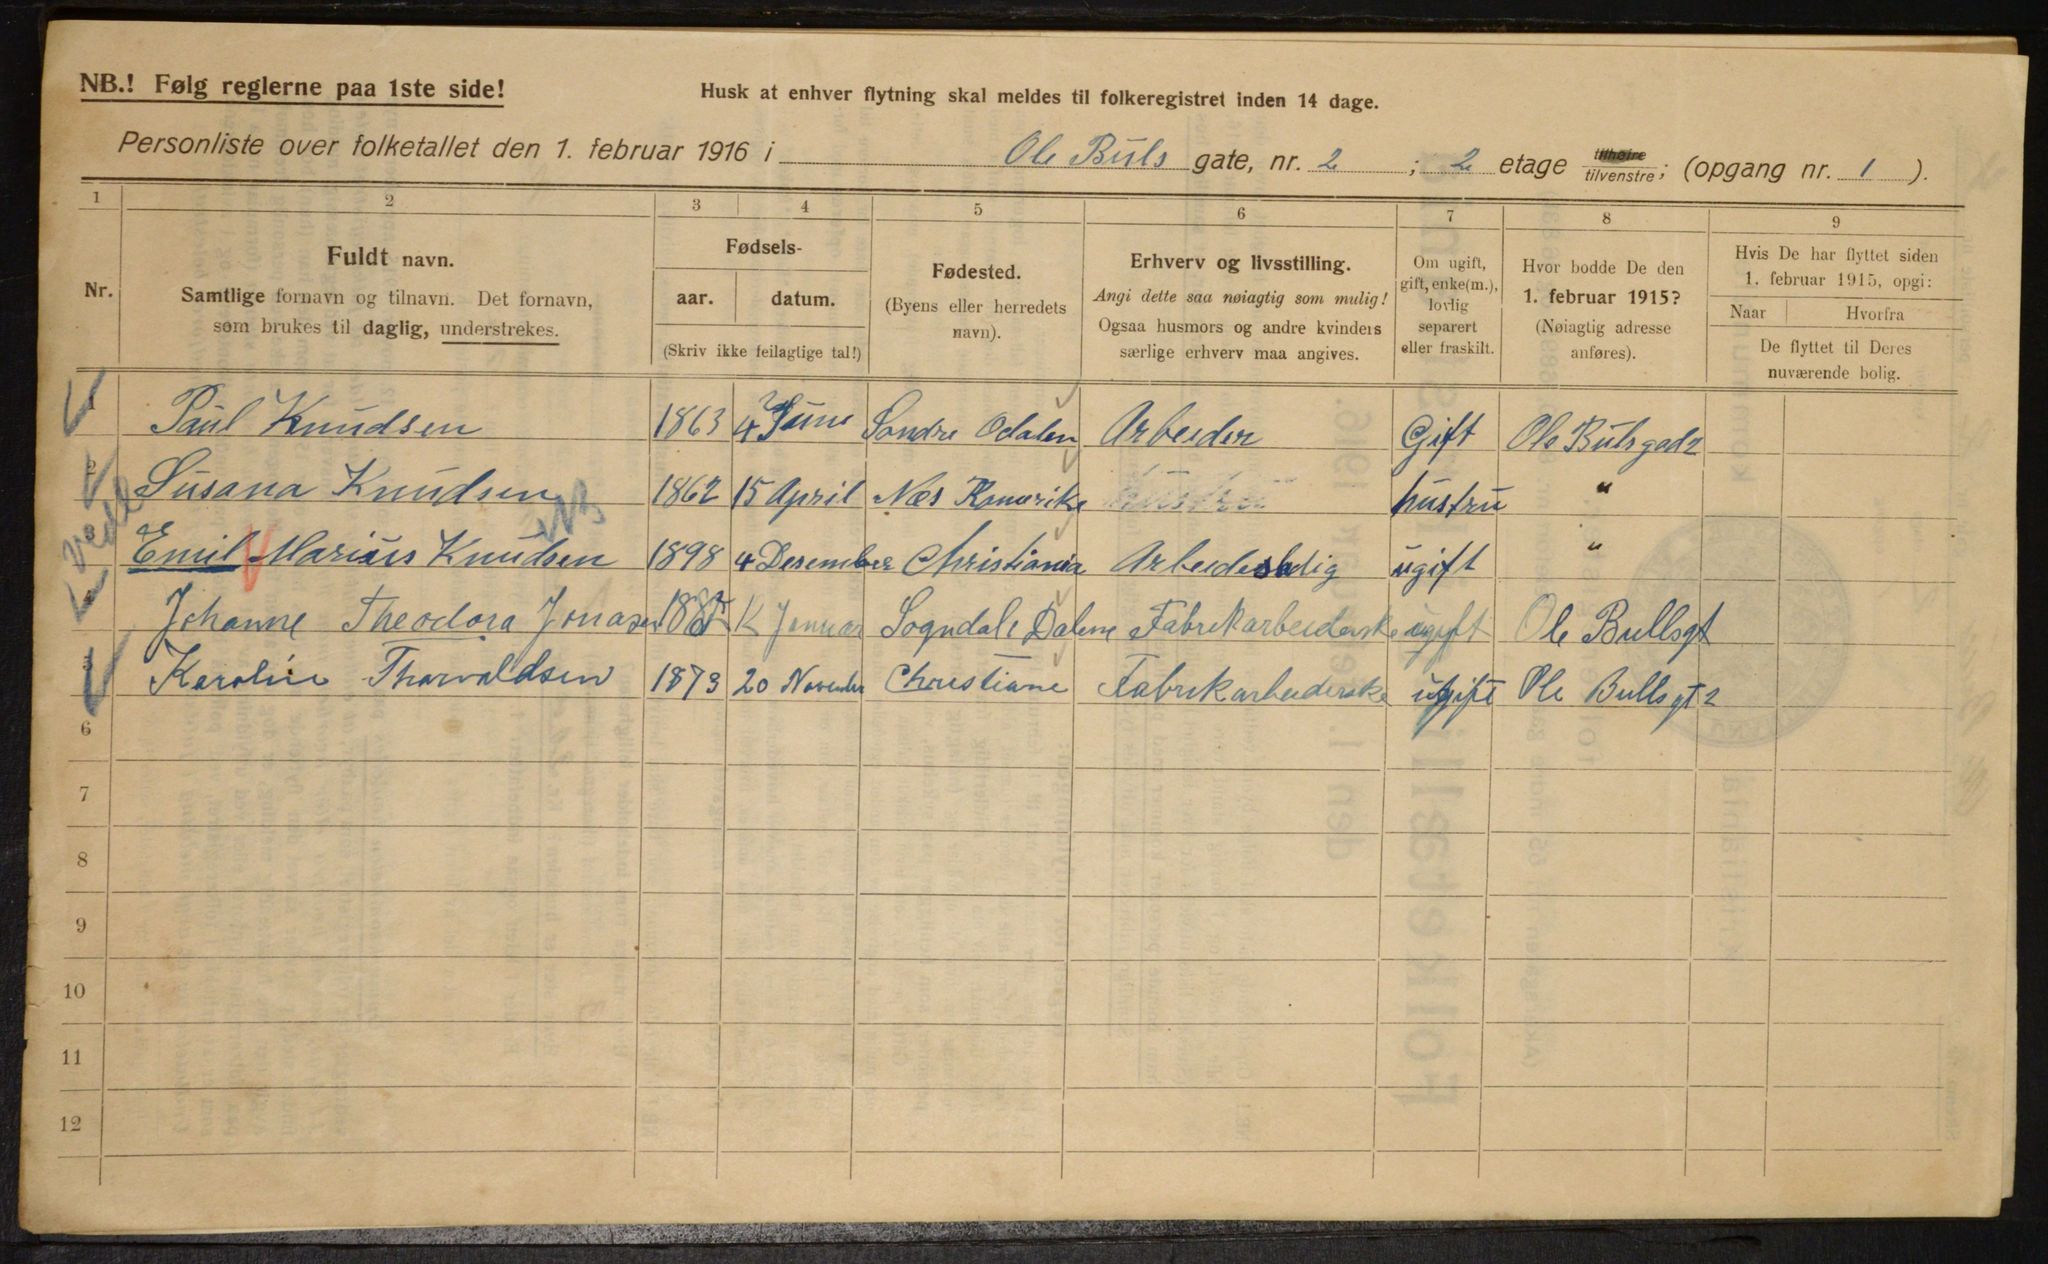 NB.! Følg reglerne paa 1ste side!
Husk at enhver flytning skal meldes til folkeregistret inden 14 dage.
Personliste over folketallet den 1. februar 1916 i Ole Buls gate, nr. 2 ; 2 etage tilhøire tilvenstre; (opgang nr. 1 ).
1 2 3 4 5 6 7 8 9
Nr.
Fuldt navn.
Samtlige fornavn og tilnavn. Det fornavn,
som brukes til daglig, understrekes.
Fødsels-
aar. datum.
(Skriv ikke feilagtige tal!)
Fødested.
(Byens eller herredets
navn).
Erhverv og livsstilling.
Angi dette saa nøiagtig som mulig!
Ogsaa husmors og andre kvinders
særlige erhverv maa angives.
Om ugift,
gift, enke(m.),
lovlig
separert
eller fraskilt.
Hvor bodde De den
1. februar 1915?
(Nøiagtig adresse
anføres).
Hvis De har flyttet siden
1. februar 1915, opgi:
Naar Hvorfra
De flyttet til Deres
nuværende bolig.
Paul Knudsen 1863 4 Juni Söndre Odalen Arbeider Gift Ole Bulsgad 2
2 Susana Knudsen 1862 15 April Næs Romerike hustru hustru "
3 Emil Marius Knudsen 1898 4 Desember Christiania Arbeidsledig ugift "
Johanne Theodora Jonasen Januar Sogndal i Dalene Fabrikarbeiderske ugift Ole Bullsgt
5 Karoline Thorvaldsen 1873 20 November Christiane Fabrikarbeiderske ugift Ole Bullsgt 2
6
7
8
9
10
11
12